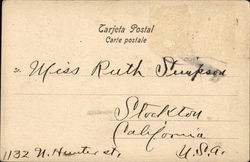 Tarjeta Postal
Carte postale
Miss Ruth Simpson
Stockton
California
1132 N. Hunter st. U.S.A.